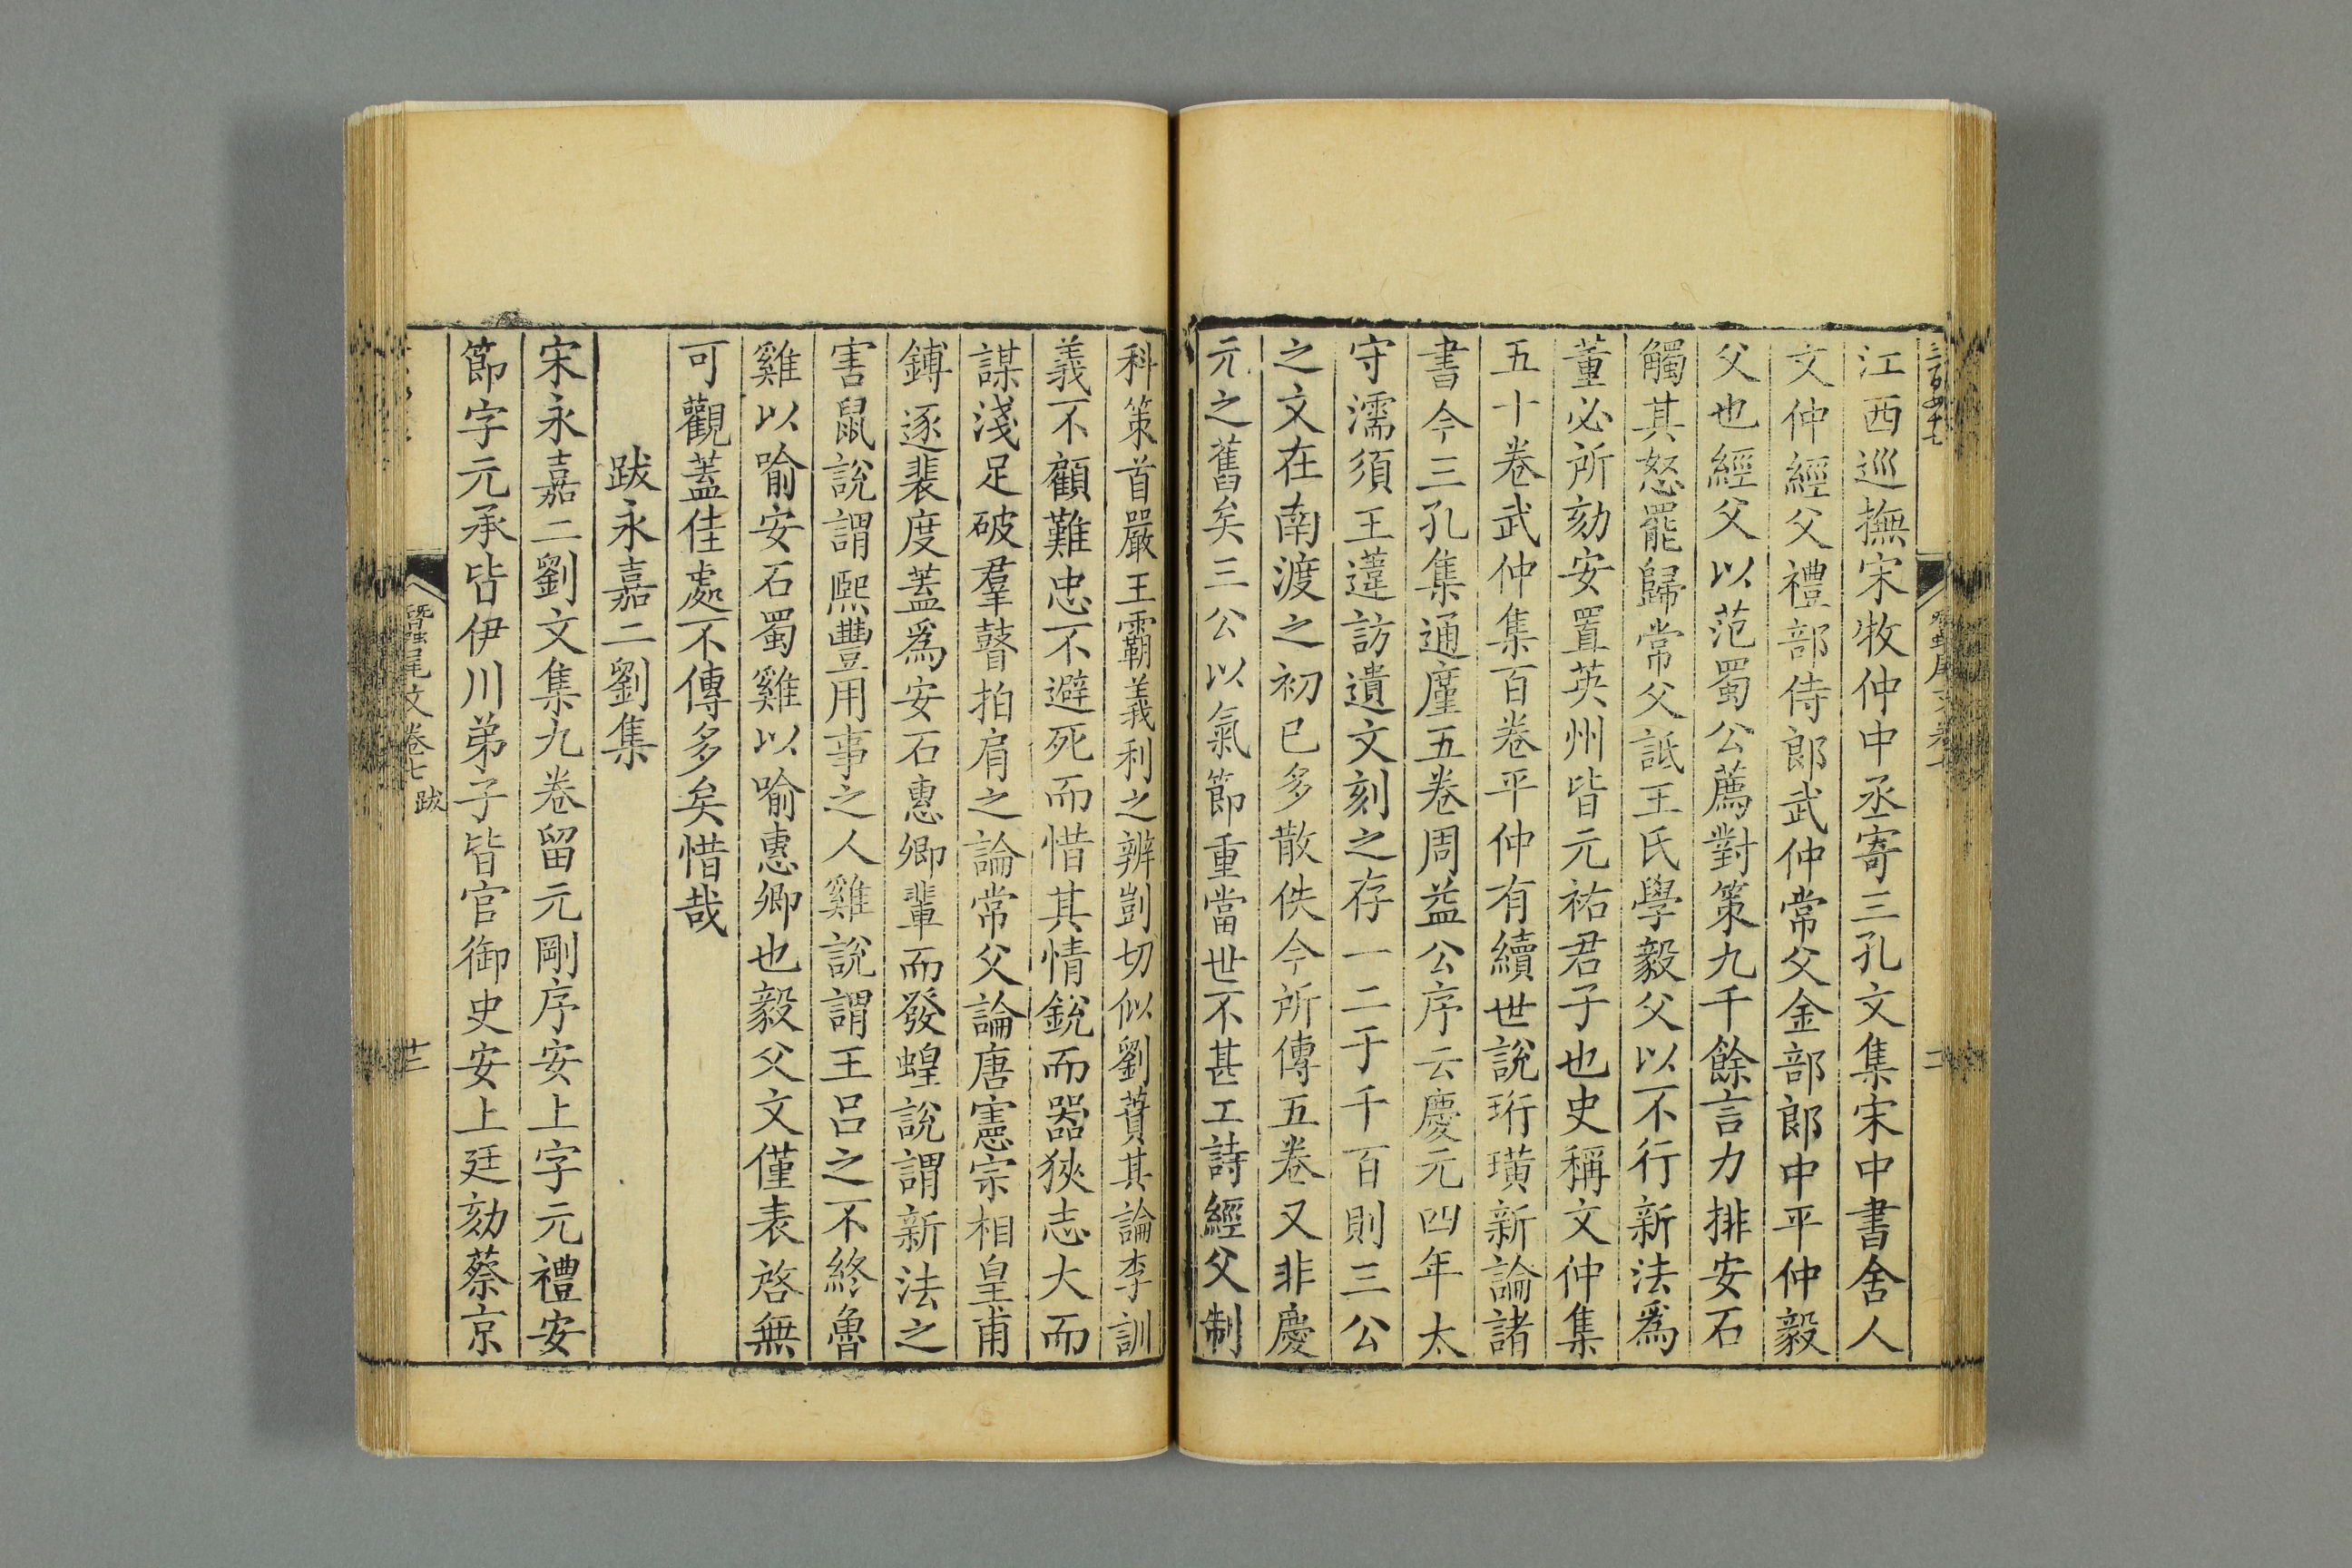 江西巡撫宋牧仲中丞寄三孔文集宋中書舍人
文仲經父禮部侍郎武仲常父金部郎中平仲毅
父也經父以范蜀公薦對策九千餘言力排安石
觸其怒罷歸常父詆王氏學毅父以不行新法爲
董必所劾安置英州皆元祐君子也史稱文仲集
五十卷武仲集百卷平仲有續世說珩璜新論諸
書今三孔集通廑五卷周益公序云慶元四年太
守濡須王薳訪遺文刻之存一二于千百則三公
之文在南渡之初已多散佚今所傳五卷又非慶
元之舊矣三公以氣節重當世不甚工詩經父制
科策首嚴王霸義利之辨剴切似劉蕡其論李訓
義不顧難忠不避死而惜其情銳而器狹志大而
謀淺足破羣瞽拍肩之論常父論唐憲宗相皇甫
鎛逐裴度蓋爲安石惠卿輩而發蝗說謂新法之
害鼠說謂熙豐用事之人雞說謂王呂之不終魯
雞以喻安石蜀雞以喻惠卿也毅父文僅表啓無
可觀蓋佳處不傳多矣惜哉
跋永嘉二劉集
宋永嘉二劉文集九卷留元剛序安上字元禮安
節字元承皆伊川弟子皆官御史安上廷劾蔡京
蠶尾文卷七 跋